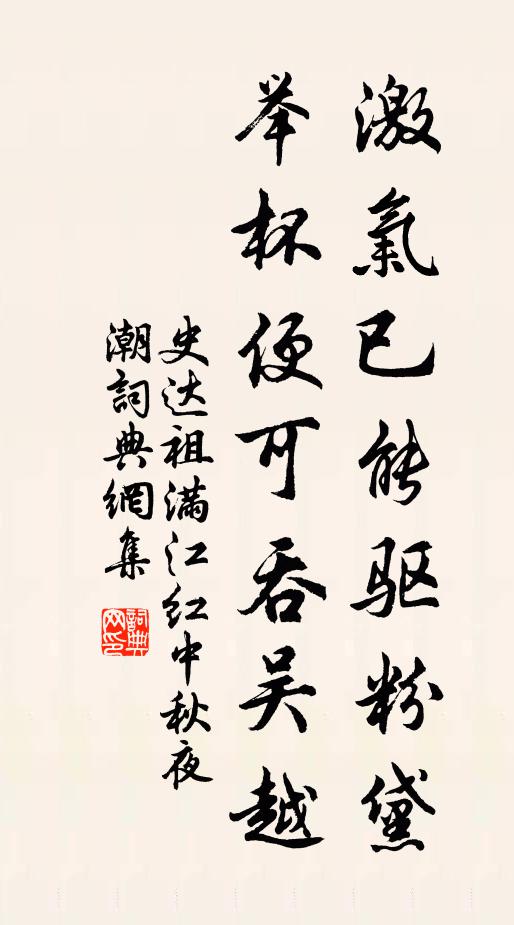 激氣已能驱粉黛
举杯便可吞吴越
史达祖满江红中秋夜
潮詞典網集
詞典
网印